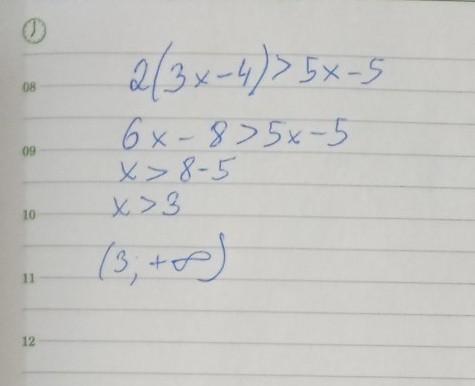 08 2(3x-4)>5x-5
6x-8>5x-5
09
x>8-5
10 x>3
(3; +∞)
11
12